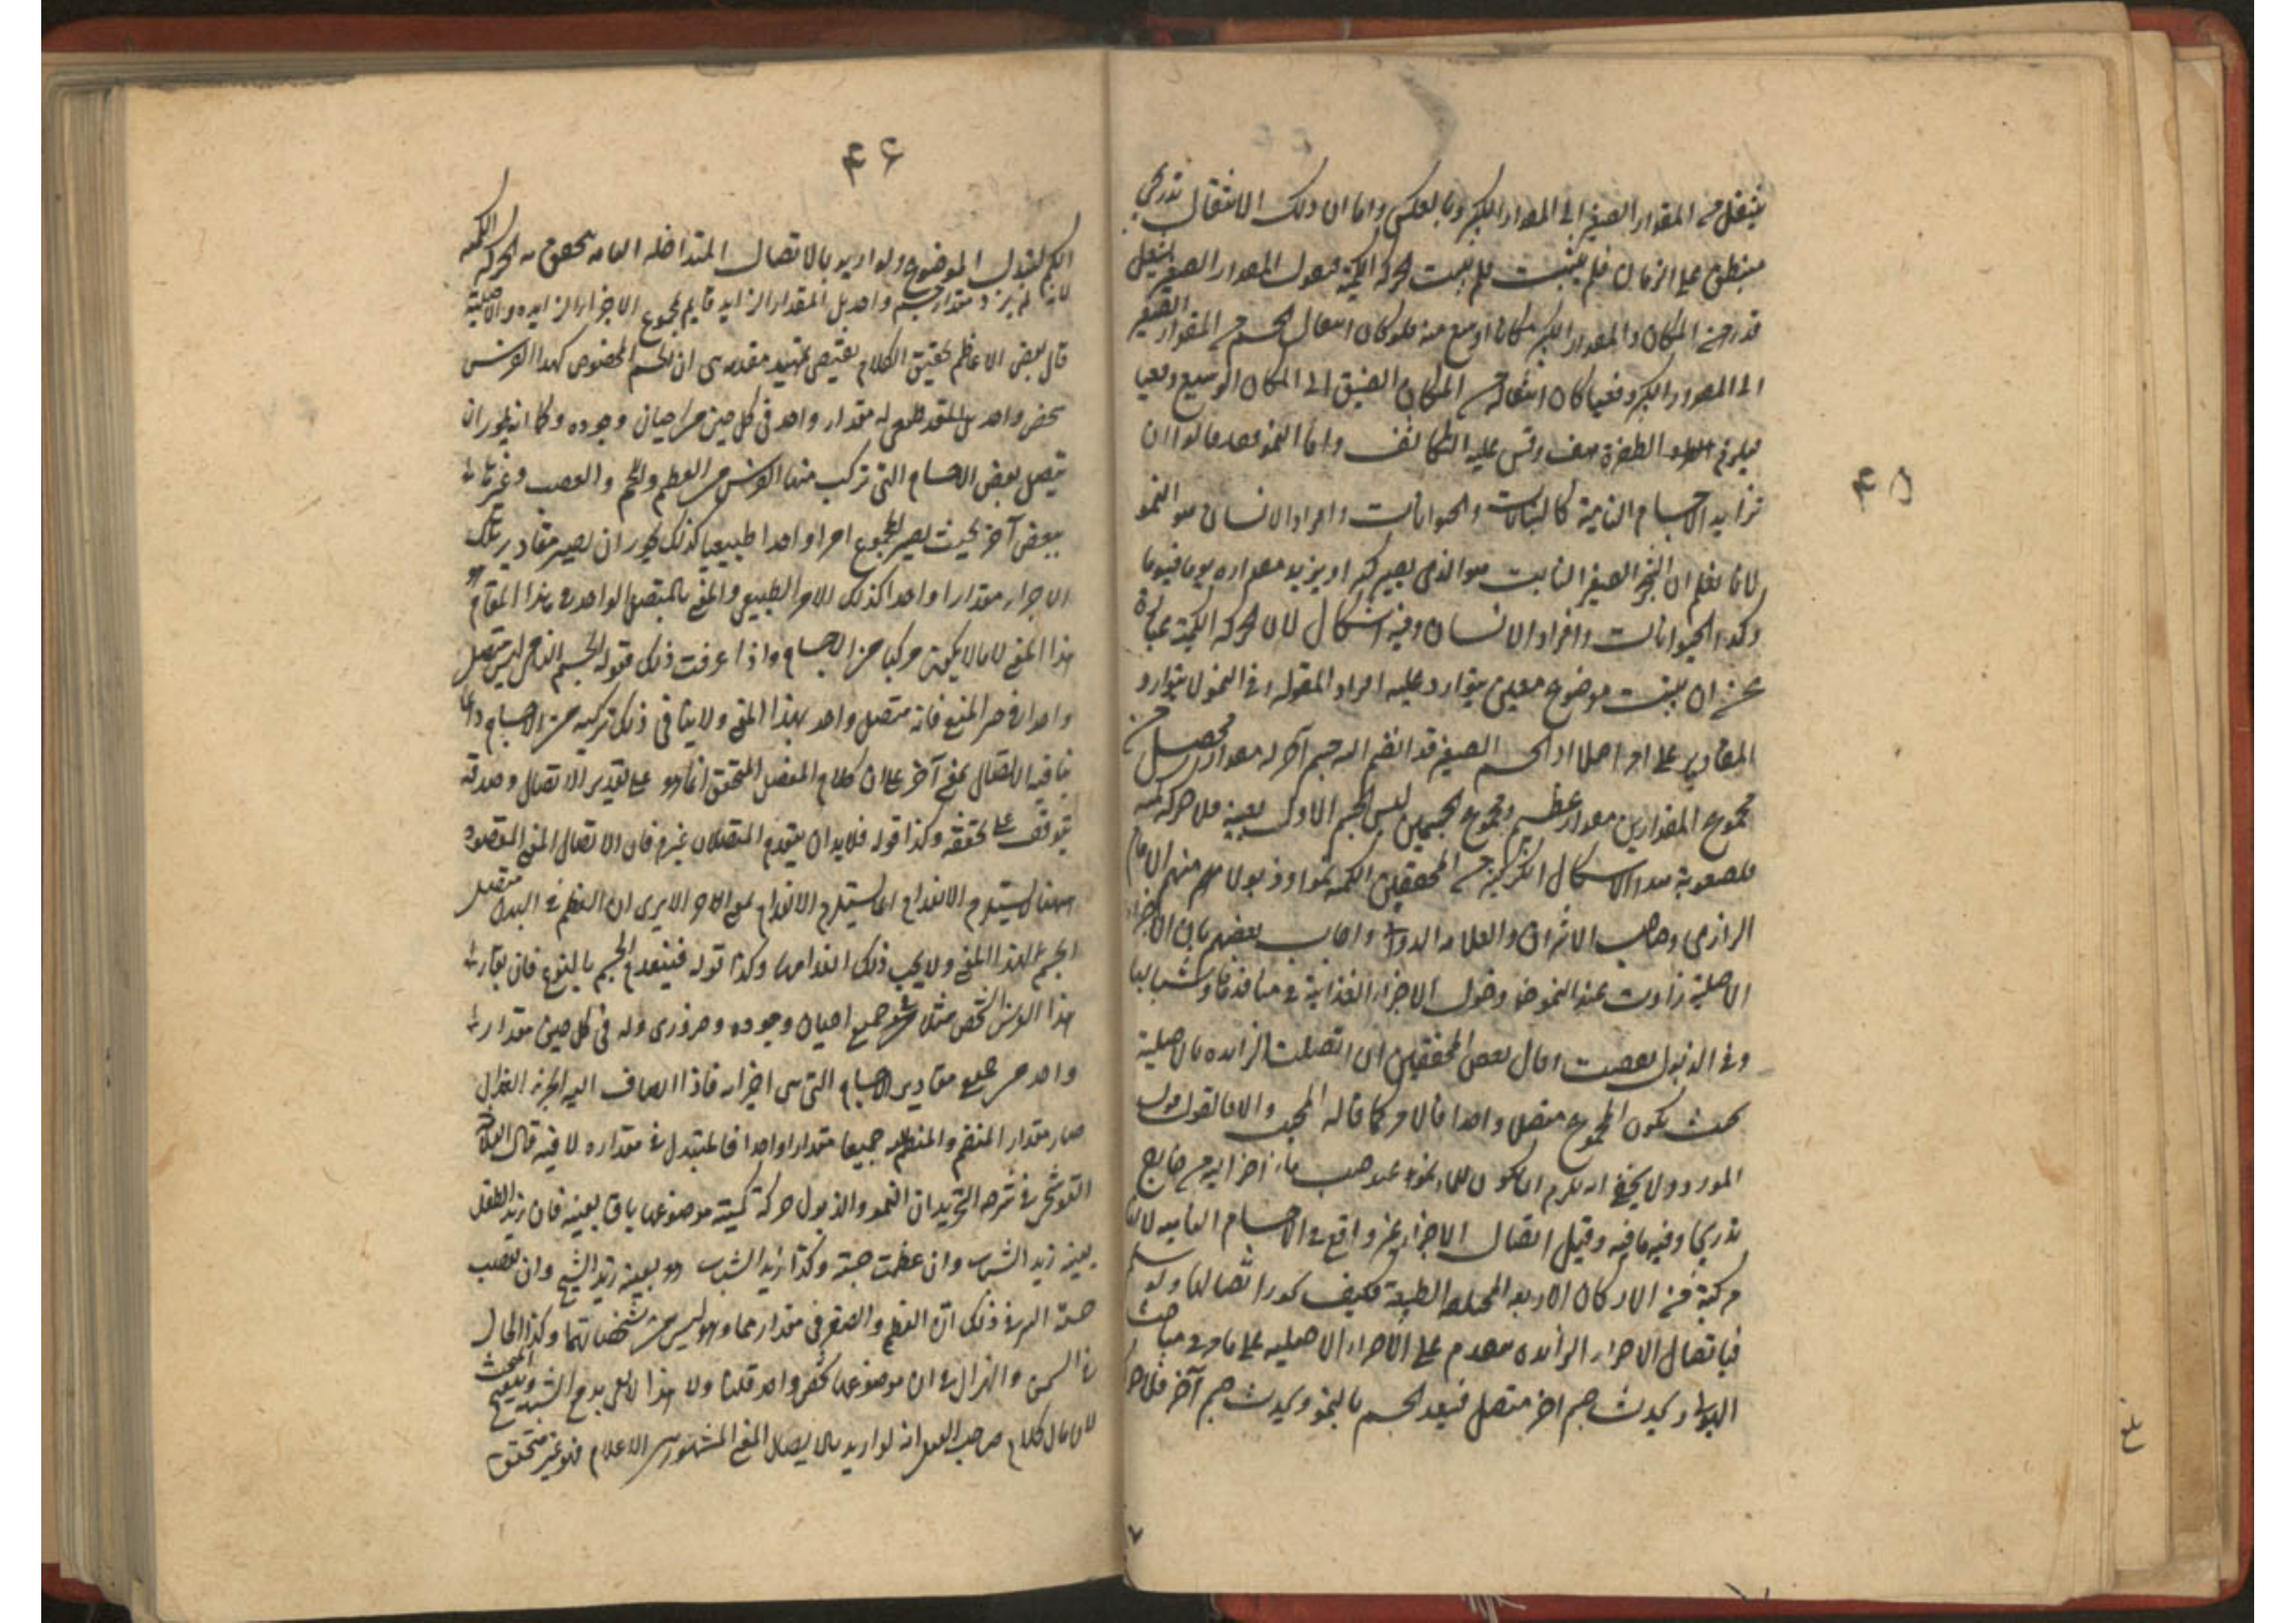 ۴۵
ينتقل من المقدار الصغير الى المقدار الكبير وبالعكس واما ان ذلك الانتقال تدريجي
منطبق على الزمان فلم يثبت فلم يثبت الحركة الكمية فنقول المقدار الصغير يشغل
قدر من المكان والمقدار الكبير مكانا اوسع منه فلو كان انتقال الجسم من المقدار الصغير
الى المقدار الكبير دفعيا كان انتقاله من المكان الضيق الى المكان الوسيع دفعيا
فيلزم الطفرة هف وقس عليه التكاثف واما النمو فقد قالوا ان
تزايد الاجسام النامية كالنباتات والحيوانات وافراد الانسان هو النمو
لانا نعلم ان الشجر الصغير النابت هو الذي يصير كبيرا ويزيد مقداره يوما فيوما
وكذا الحيوانات وافراد الانسان وفيه اشكال لان الحركة الكمية عبارة
عن ان يثبت موضوع معين يتوارد عليه افراد المقولة وفي النمو لا يتوارد
المقادير على امر اصلا اذ الجسم الصغير قد انضم اليه جسم آخر له مقدار فحصل من
مجموع المقدارين مقدار عظيم ومجموع الجسمين ليس الجسم الاول بعينه فلا حركة كمية
فلصعوبة هذا الاشكال انكر كثير من المحققين الكمية نموا وذبولا منهم الامام
الرازي وصاحب الاشراق والعلامة الدواني واجاب بعضهم بان الاجزاء
الاصلية زادت عند النمو دخول الاجزاء الغذائية في منافذها وتشبهها بها
وفي الذبول نقصت وقال بعض المحققين ان اتصلت الزائدة بالاصلية
بحيث يكون المجموع متصلا واحدا فالامر كما قاله المجيب والا فالقول قول
المورد ولا يخفى انه يلزم ان يكون للماء نموا عند صب ماء آخر اليه من خارج
تدريجا وفيه ما فيه وقيل اتصال الاجزاء غير واقع في الاجسام النامية لانها
مركبة من الاركان الاربعة المختلفة الطبيعة فكيف يجوز اتصالها ولو سلم
فباتصال الاجزاء الزائدة ينعدم على الاجزاء الاصلية على ما مر في مباحث
الهيولى ويحدث جسم آخر متصل فينعدم الجسم بالنمو ويحدث جسم آخر فلا حركة
۴۶
الكم لتبدل الموضوع ولو اريد بالاتصال المتداخلة التامة لم يتحقق به الحركة الكمية
لانه لم يزد مقدار جسم واحد بل المقدار الزايد قايم بمجموع الاجزاء الزايدة والاصلية
قال بعض الاعاظم تحقيق الكلام يقتضي تمهيد مقدمة هي ان الجسم المخصوص كهذا الفرس
شخص واحد له مقدار واحد في كل حين من احيان وجوده وكما انه يجوز ان
يتصل بعض الاجسام التي تركب منها الفرس من العظم واللحم والعصب وغيرها
ببعض آخر بحيث يصير المجموع امرا واحدا طبيعيا كذلك يجوز ان يصير مقادير تلك
الاجزاء مقدارا واحدا كذلك الامر الطبيعي والمعنى بالمتصل الواحد في هذا المقام هو
هذا المعنى لا ما لا يكون مركبا من الاجسام واذا عرفت ذلك فقوله الجسم النامي ليس متصلا
واحدا في حيز المنع فانه متصل واحد بهذا المعنى ولا ينافي ذلك تركيبه من الاجسام وانما
ينافيه الاتصال بمعنى آخر على ان كلام المفصل المحقق انما هو على تقدير الاتصال وصدقه
يتوقف على تحققه وكذا قوله فلا بد ان ينعدم المتصلان غير فان الاتصال بالمعنى المقصود
ههنا لا يستلزم الانعدام انما يستلزم الانعدام بمعنى الآخر الا يرى ان العظم في البدن متصل
اللحم بهذا المعنى ولا يجب ذلك انعدامها وكذا قوله فينعدم الجسم بالنمو فان بقاء
هذا الفرس الشخص مثلا في جميع احيان وجوده ضروري وله في كل حين مقدار
واحد من جميع مقادير الاجسام التي هي اجزائه فاذا انضاف اليه الجزء الغذائي
صار مقدار المنضم والمنضم اليه جميعا مقدارا واحدا فالمتبدل في مقداره لا فيه قال العلامة
القوشجي في شرحه التجريد ان النمو والذبول حركة كمية موضوعها باق بعينه فان زيد الطفل
بعينه زيد الشاب وان عظمت جثته وكذا زيد الشاب هو بعينه زيد الشيخ وان نقصت
جثته السر في ذلك ان العظم والصغر في مقدارهما وهو ليس من مشخصاتهما وكذا الحال
في السمن والهزال في ان موضوعهما شخص واحد قلت ولا هذا لا يدفع الشبهة
لان مآل كلام صاحب القيل انه لو اريد بالاتصال المعنى المشهور من الاعلام فهو غير متحقق